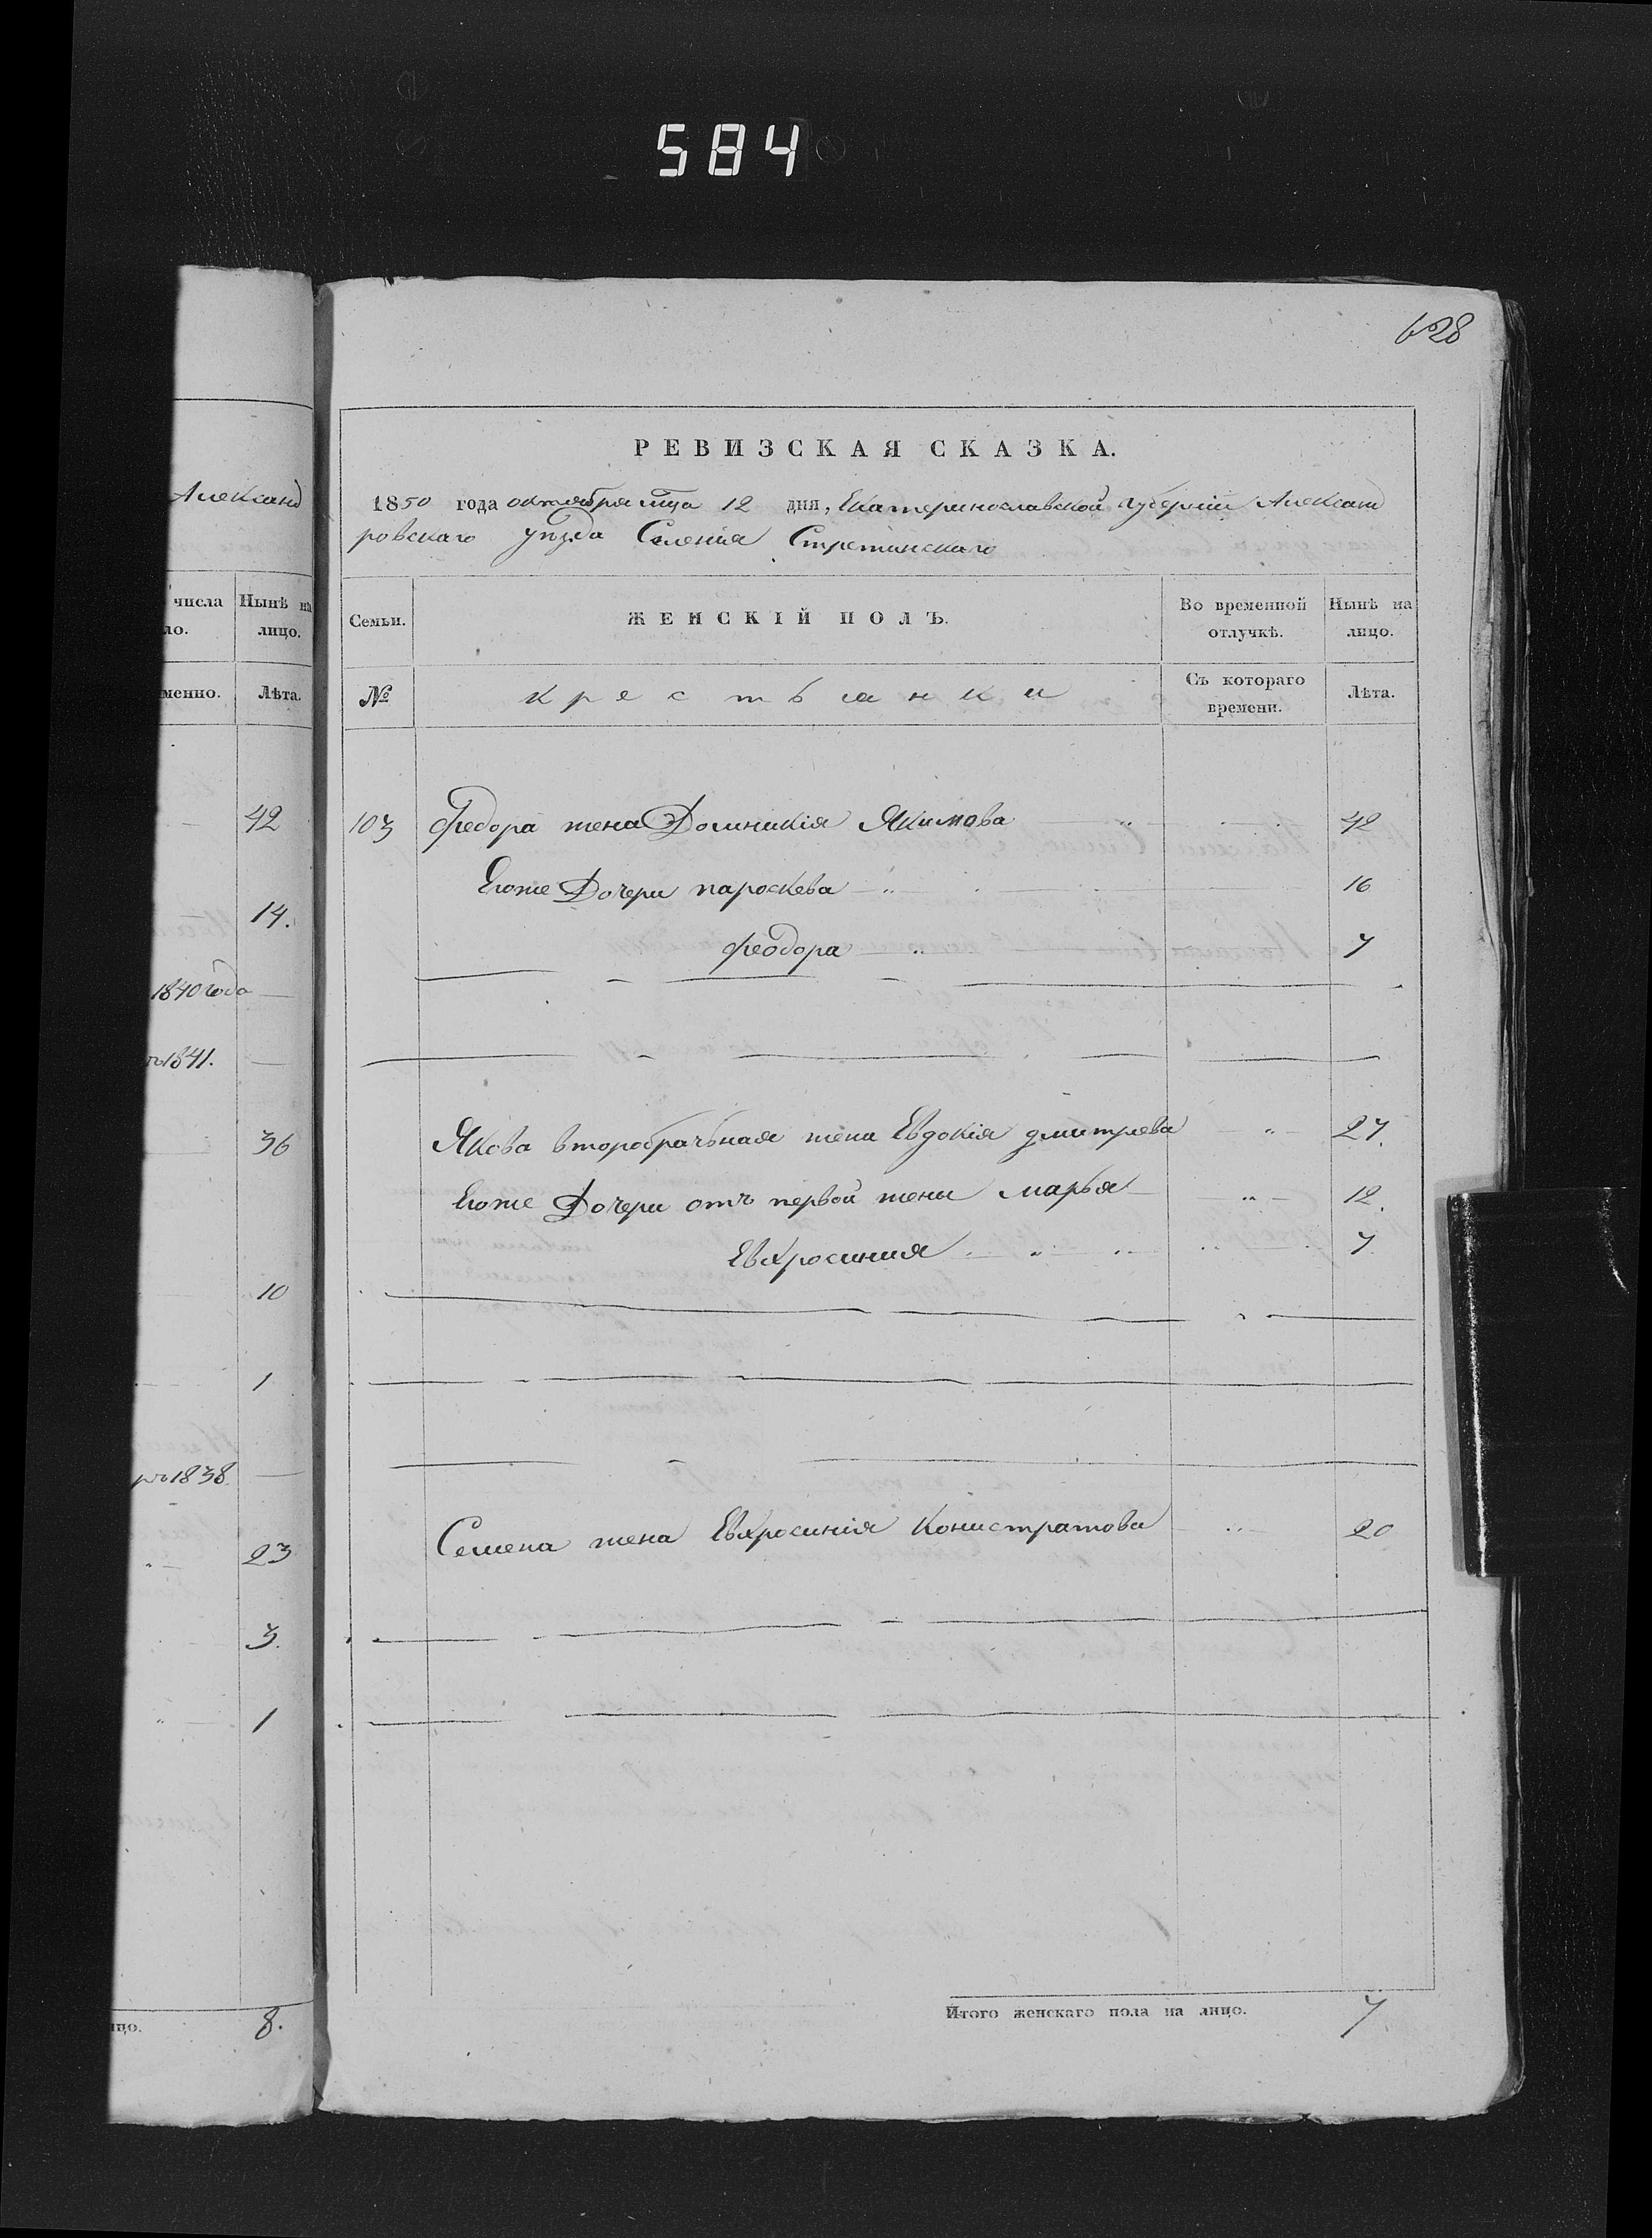 584
628
Александ
числа
ло.
Нынѣ на
лицо.
менно.
Лѣта.
42
14.
1840 года
1841.
36
10
1
1838.
23
3.
1
ицо.
8.
РЕВИЗСКАЯ СКАЗКА.
1850 года октября мца 12 дня, Екатеринославской губерніи Александ
ровскаго уѣзда Селенія Стретинскаго
Семьи.
ЖЕНСКІЙ ПОЛЪ.
Во временной
отлучкѣ.
Нынѣ на
лицо.
№
крестьянки
Съ котораго
времени.
Лѣта.
103 Федора жена Домникія Якимова 42
Егоже Дочери пароскева 16
феодора 7
Якова второбрачьная жена Евдокія дмитрева 27.
Егоже Дочери отъ первой жены марья 12.
Евхросиния 7
Семена жена Евхросинія Конистратова 20
Итого женскаго пола на лицо. 7